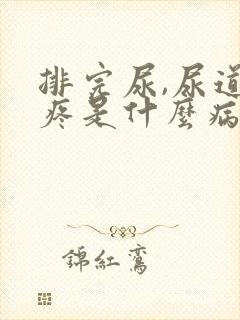 排完尿,尿道
疼是什麼病
錦紅鸞